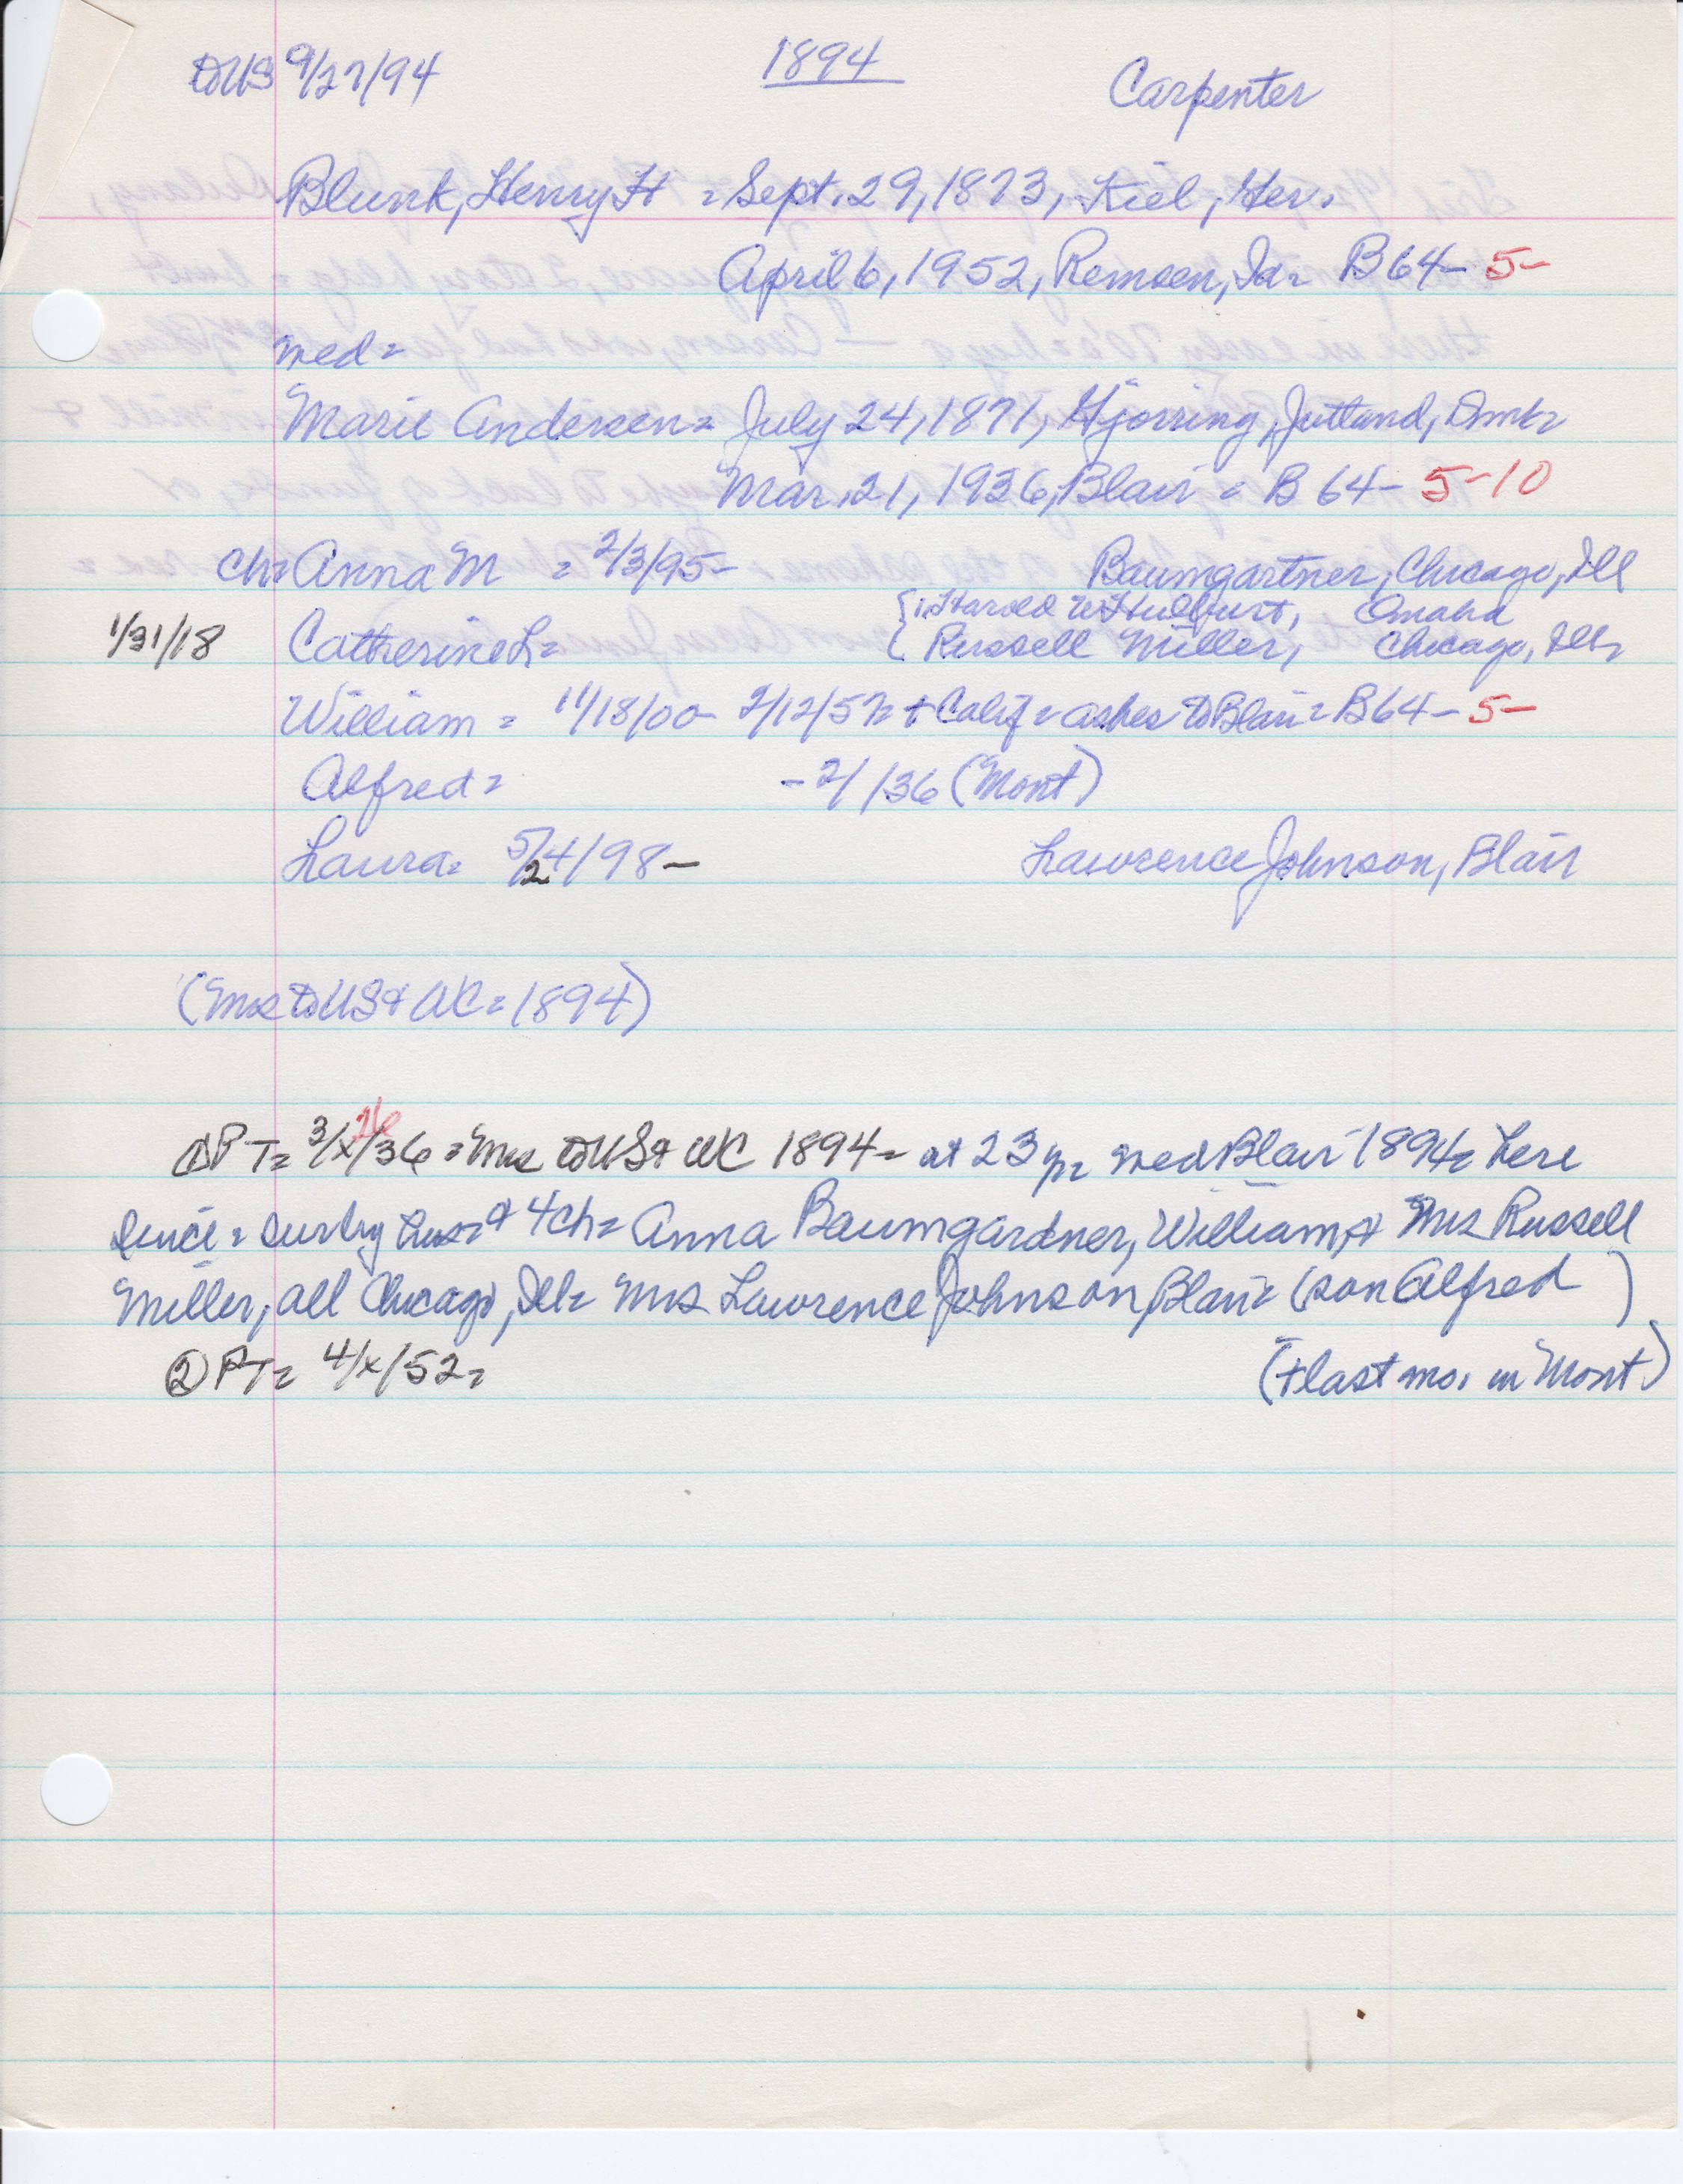 to US 9/27/94 1894 Carpenter
Blunk, Henry H = Sept. 29, 1873, Kiel, Ger.
April 6, 1952, Remsen, Ia = B64- 5-
med =
Marie Andersen = July 24, 1871, Hjorring, Jutland, Dmk =
Mar. 21, 1936, Blair = B 64- 5-10
ch = Anna M = 2/3/95- Baumgartner, Chicago, Ill
{ 1, Harold W Hulburt, Omaha
1/31/18 Catherine L = ( Russell Miller, Chicago, Ill =
William = 11/18/00- 2/12/57 = + Calif = ashes to Blair = B64- 5-
Alfred = - 2/ /36 (Mont)
Laura = 5/24/98- Lawrence Johnson, Blair
(Mrs to US & WC = 1894)
① PT = 3/x/36 26 = Mrs to US & WC 1894 - at 23 yr = med Blair 1894 = here
since = surv by hus = & 4 ch = Anna Baumgardner, William, & Mrs Russell
Miller, all Chicago, Ill = Mrs Lawrence Johnson, Blair = (son Alfred )
② PT = 4/x/52 = (+ last mo. in Mont)